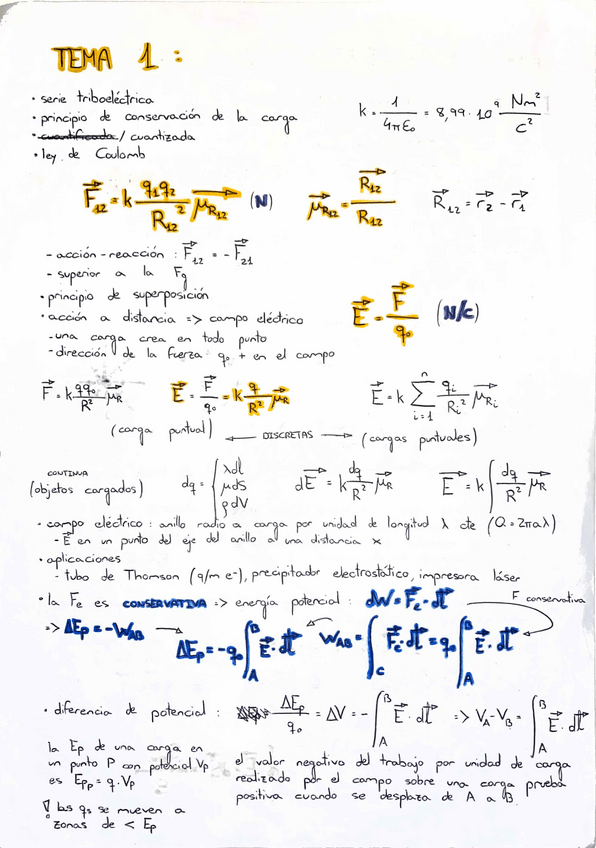 TEMA 1 :
· serie triboeléctrica
· principio de conservación de la carga
k = 1/4πε₀ = 8,99·10⁹ Nm²/C²
· cuantificada / cuantizada
· ley de Coulomb
F⃗₁₂ = k q₁q₂/R₁₂² μ⃗_R₁₂ (N)    μ⃗_R₁₂ = R⃗₁₂/R₁₂    R⃗₁₂ = r⃗₂ - r⃗₁
- acción-reacción : F⃗₁₂ = - F⃗₂₁
- superior a la Fg
· principio de superposición
· acción a distancia => campo eléctrico
E⃗ = F⃗/q₀ (N/C)
- una carga crea en todo punto
- dirección de la fuerza q₀ + en el campo
F⃗ = k qq₀/R² μ⃗_R    E⃗ = F⃗/q₀ = k q/R² μ⃗_R    E⃗ = k Σ_{i=1}^{n} q_i/R_i² μ⃗_Ri
(carga puntual) ← DISCRETAS → (cargas puntuales)
CONTINUA
(objetos cargados)    dq = { λdl    dE⃗ = k dq/R² μ⃗_R    E⃗ = k ∫ dq/R² μ⃗_R
μdS
ρdV
· campo eléctrico : anillo radio a carga por unidad de longitud λ cte (Q = 2πaλ)
- E⃗ en un punto del eje del anillo a una distancia x
· aplicaciones
- tubo de Thomson (q/m e⁻), precipitador electrostático, impresora láser
· la Fe es CONSERVATIVA => energía potencial : dW = F⃗c · dl⃗    F conservativa
=> ΔEp = -W_AB → ΔEp = -q₀ ∫_A^B E⃗·dl⃗    W_AB = ∫_C F⃗c·dl⃗ = q₀ ∫_A^B E⃗·dl⃗
· diferencia de potencial : ΔEp/q₀ = ΔV = - ∫_A^B E⃗·dl⃗ => V_A - V_B = ∫_A^B E⃗·dl⃗
la Ep de una carga en
un punto P con potencial Vp
es Epp = q·Vp
el valor negativo del trabajo por unidad de carga
realizado por el campo sobre una carga prueba
positiva cuando se desplaza de A a B.
! las qs se mueven a
zonas de < Ep